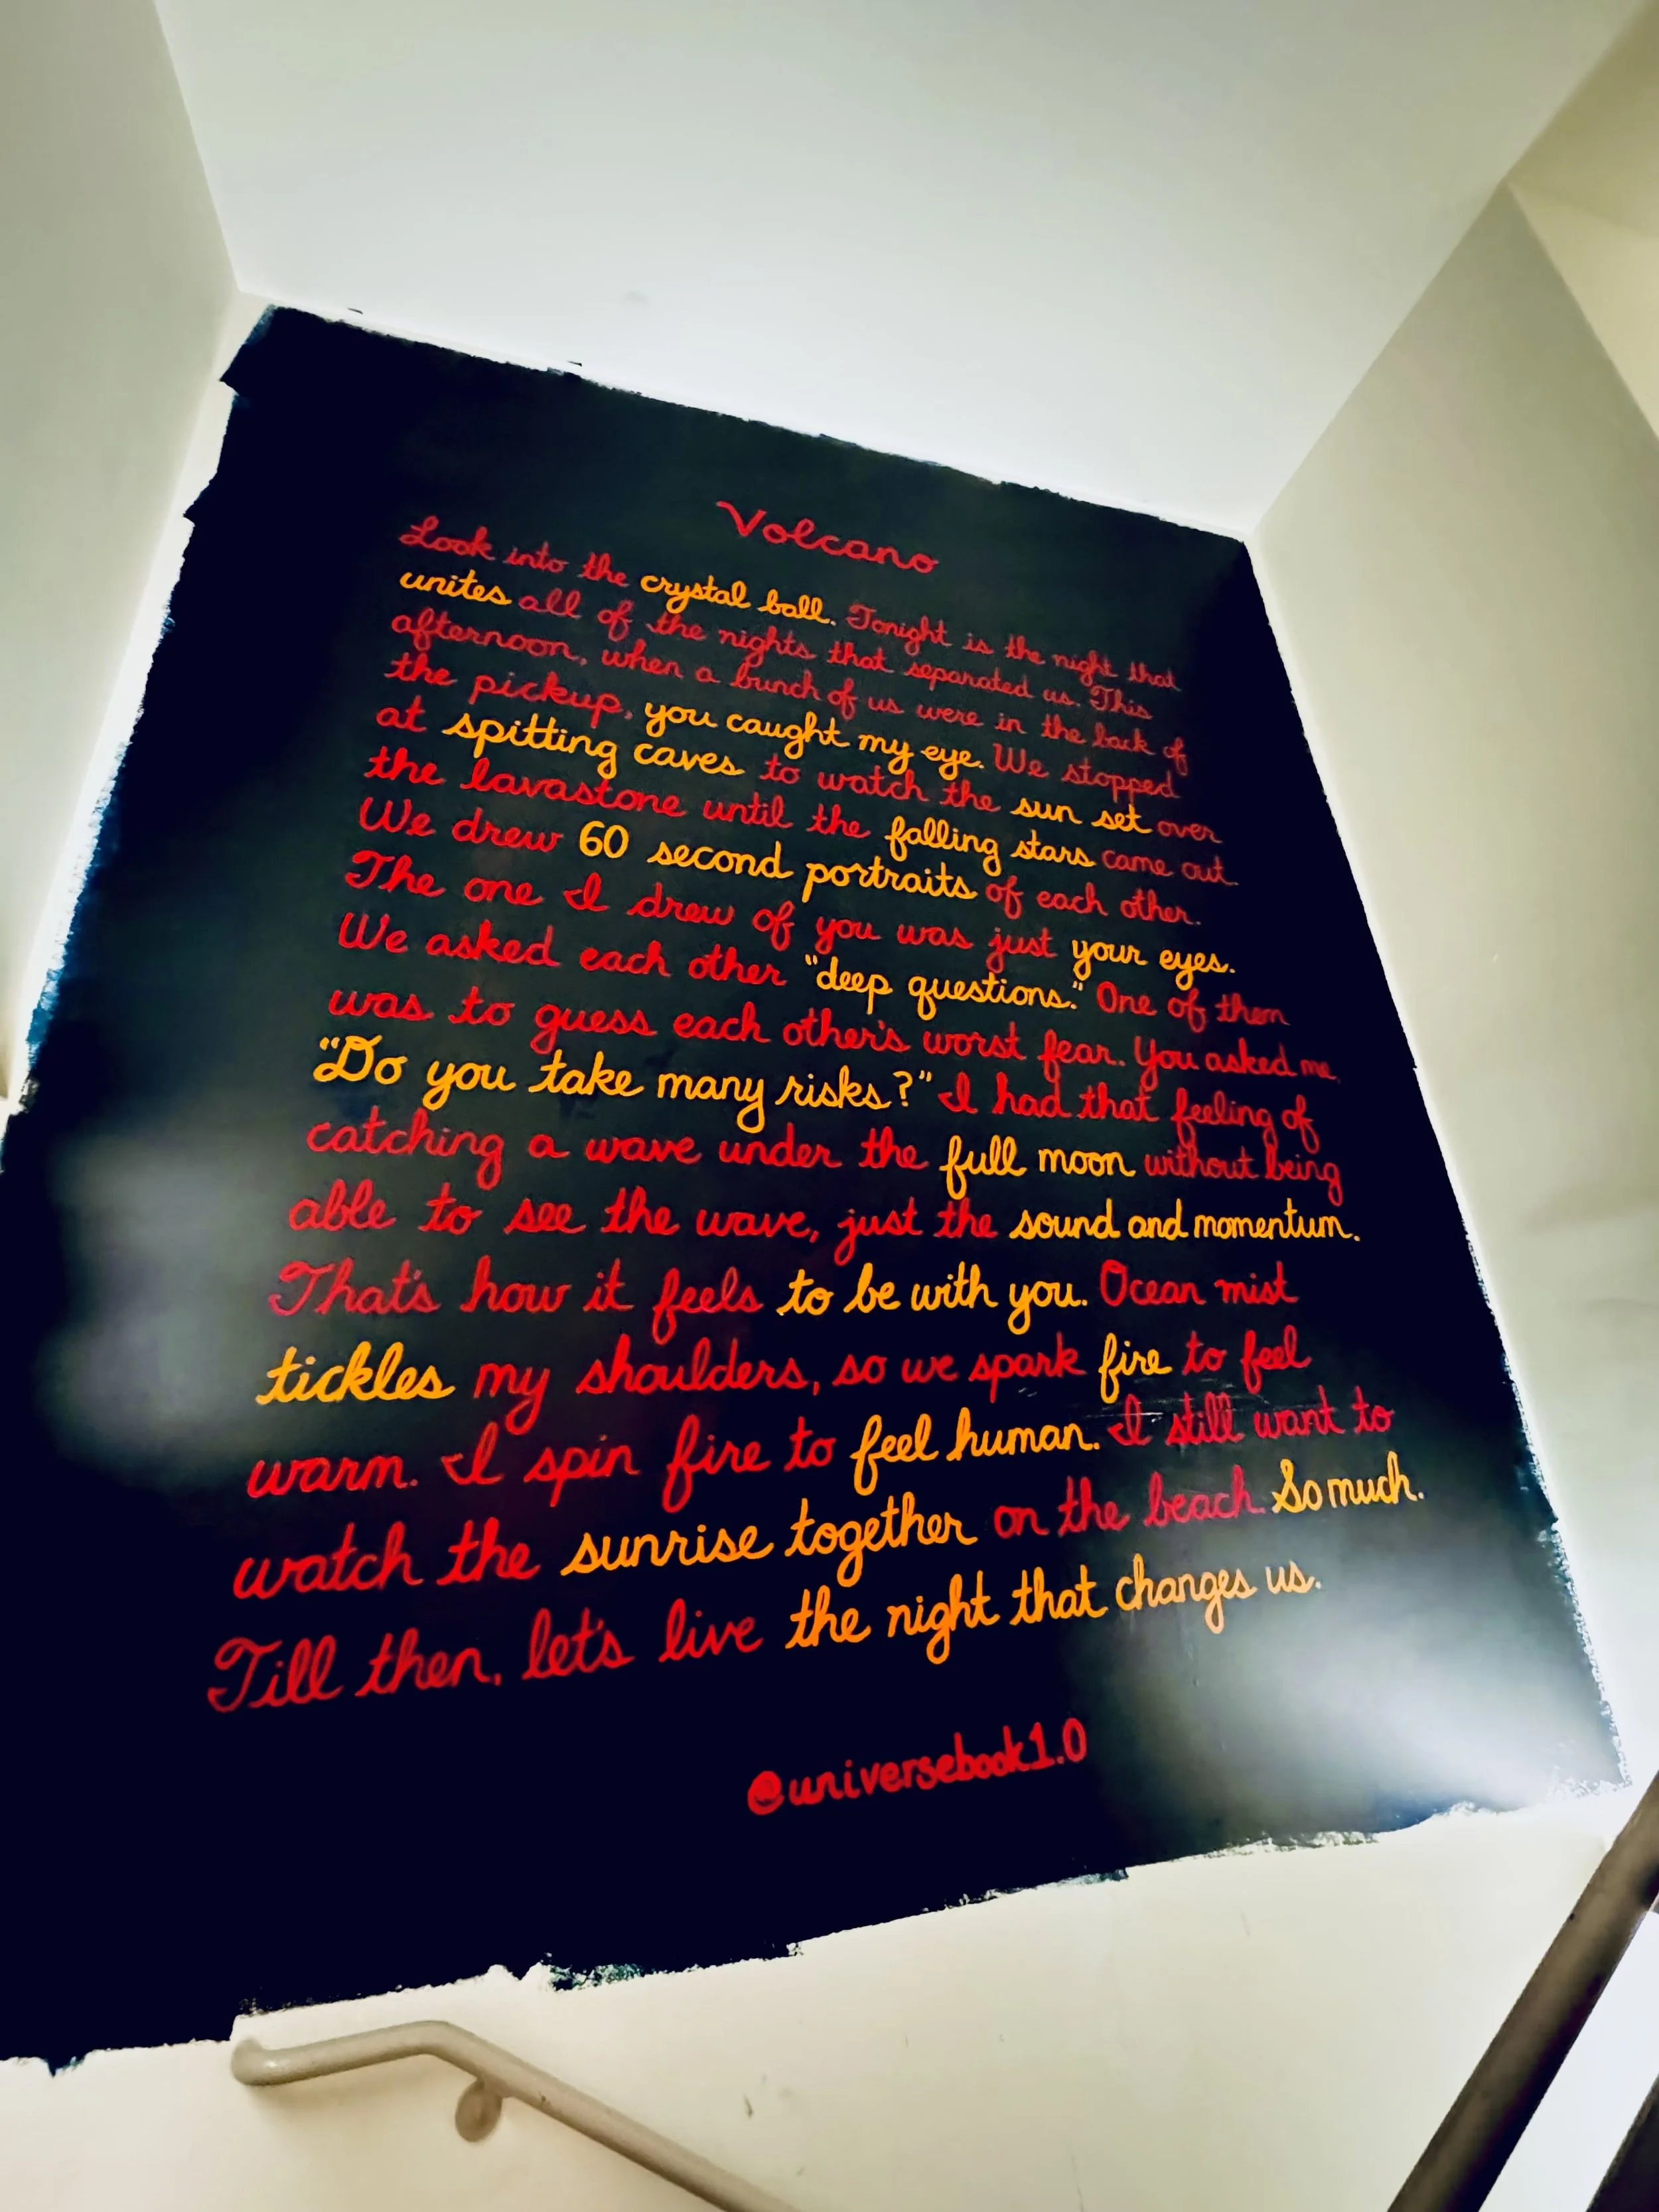 Volcano
Look into the crystal ball. Tonight is the night that
unites all of the nights that separated us. This
afternoon, when a bunch of us were in the back of
the pickup, you caught my eye. We stopped
at spitting caves to watch the sun set over
the lavastone until the falling stars came out.
We drew 60 second portraits of each other.
The one I drew of you was just your eyes.
We asked each other "deep questions." One of them
was to guess each other's worst fear. You asked me,
"Do you take many risks?" I had that feeling of
catching a wave under the full moon without being
able to see the wave, just the sound and momentum.
That's how it feels to be with you. Ocean mist
tickles my shoulders, so we spark fire to feel
warm. I spin fire to feel human. I still want to
watch the sunrise together on the beach. So much.
Till then, let's live the night that changes us.
@universebook1.0